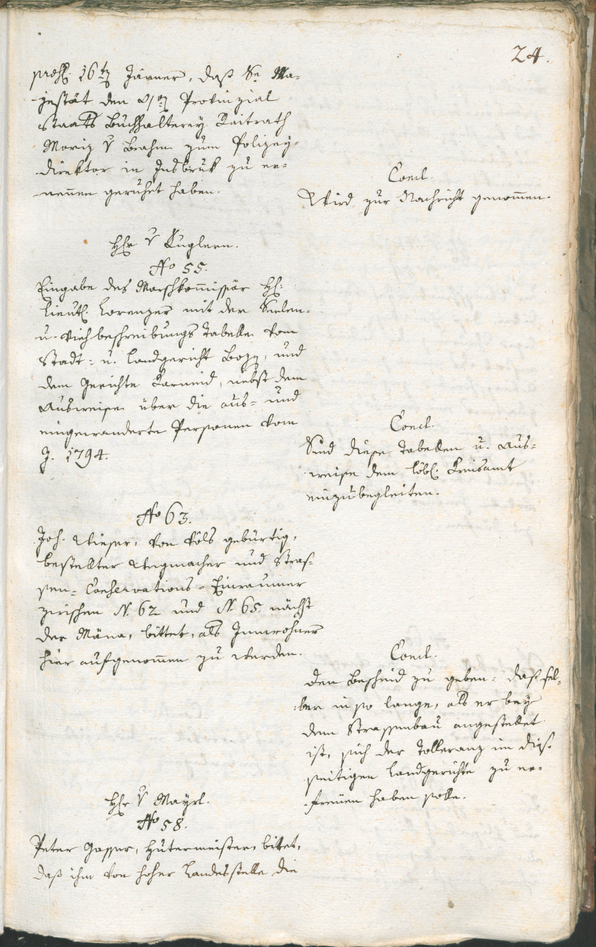 24.
præs. 16ten Jäner, daß Se. Ma-
jestät den Provinzial
Staats Buchhalterey Raitrath
Moriz v Brehm zum Polizey-
direktor in Insbruk zu er-
nennen geruhet haben.
Concl.
Wird zur Nachricht genommen.
Hr. v Kuglern.
No 55.
Eingabe des Marschkommissär H:
Lieut. Lorenzer mit der Seelen-
u. Viehbeschreibungs Tabelle vom
Stadt- u. Landgericht Boz, und
dem Gerichte Karneid, nebst dem
Ausweise über die aus- und
eingewanderte Personen vom
J. 1794.
Concl.
Sind diese Tabellen u. Aus-
weise dem löbl. Kreisamt
einzubegleiten.
No 63.
Joh. Wieser, von Völs gebürtig,
bestellter Wegmacher und Stras-
sen-Conservations-Einraumer
zwischen N. 62 und N. 65 nächst
der Mäna, bittet, als Innwohner
hier aufgenommen zu werden.
Concl.
Den Bescheid zu geben: daß sel-
ber in so lange, als er bey
dem Strassenbau angestellet
ist, sich der Tolleranz im dies-
seitigen Landgerichte zu er-
freuen haben solle.
Hr. v Mayrl.
No 58.
Peter Gasser, Hutermeister, bitet,
daß ihm von hoher Landesstelle die